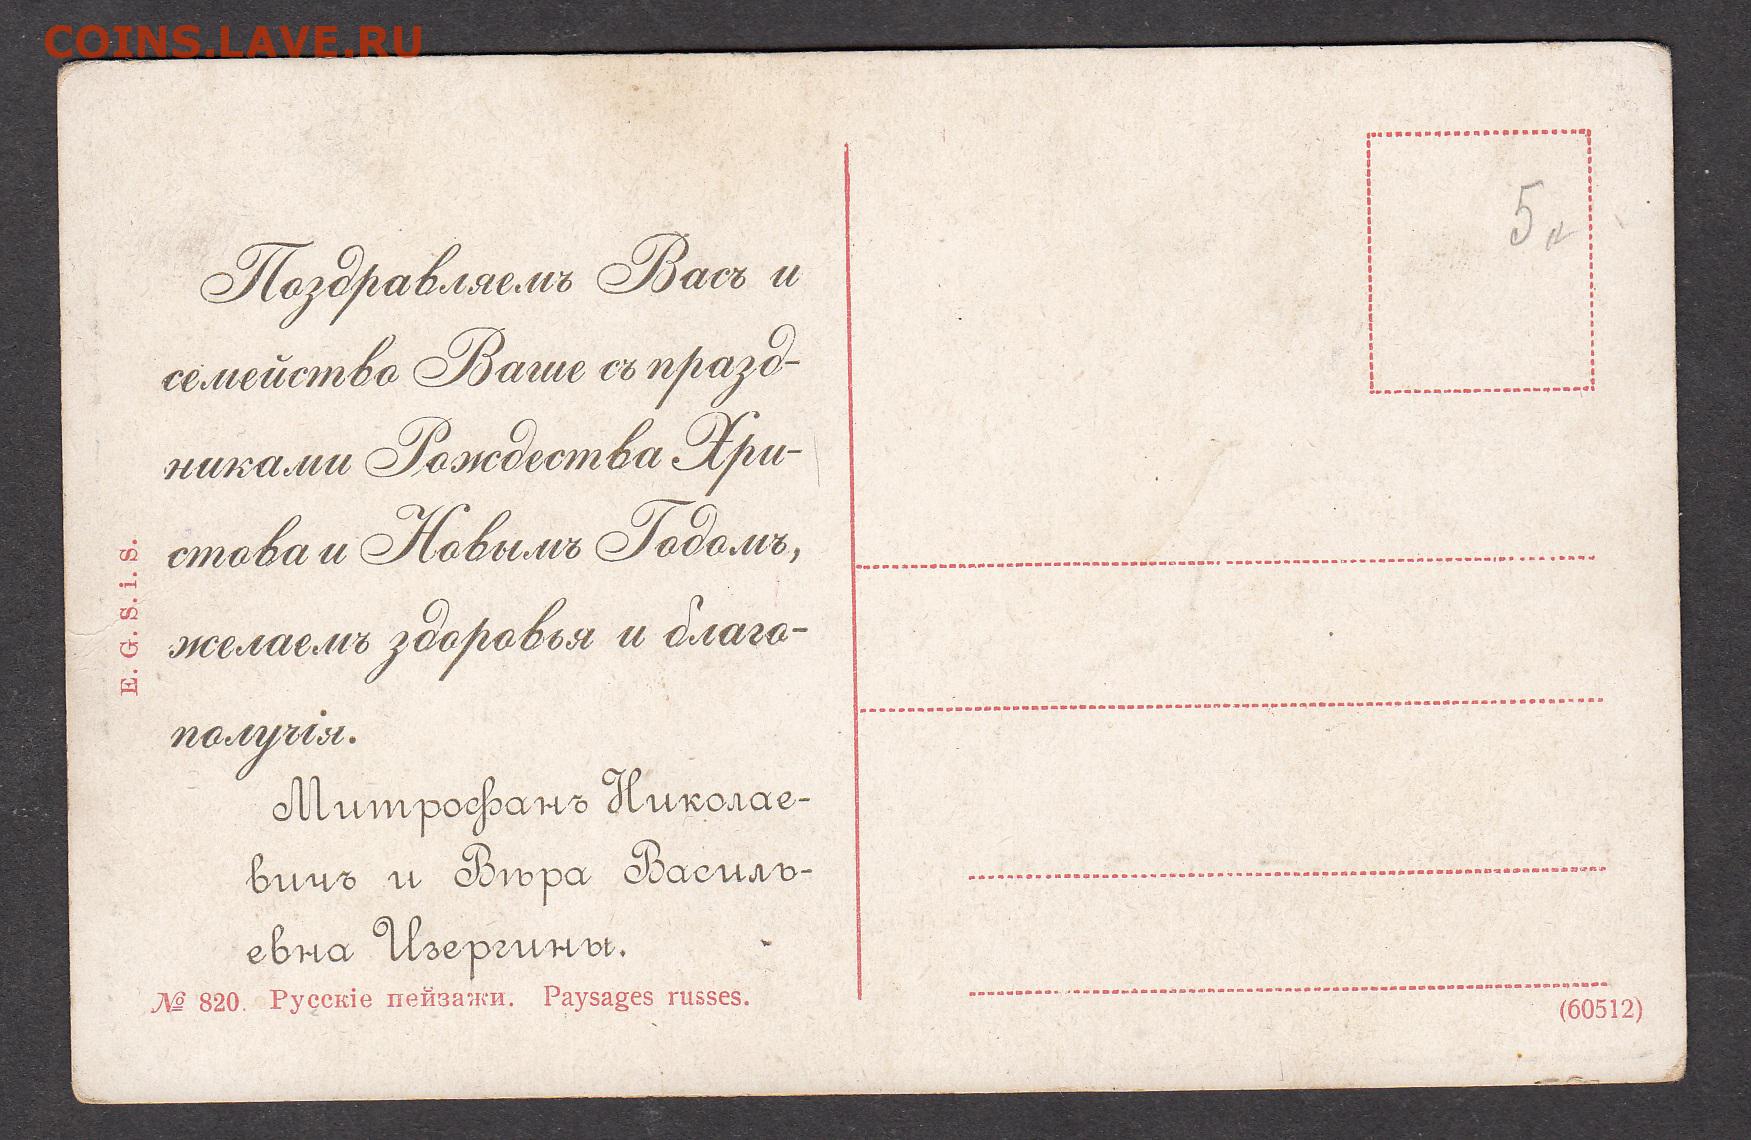 COINS.LAVE.RU
Поздравляемъ Васъ и
семейство Ваше съ празд-
никами Рождества Хри-
стова и Новымъ Годомъ,
желаемъ здоровья и благо-
получія.
Митрофанъ Николае-
вичъ и Вѣра Василь-
евна Изергины.
E. G. S. i. S.
№ 820. Русскіе пейзажи. Paysages russes.
5
(60512)